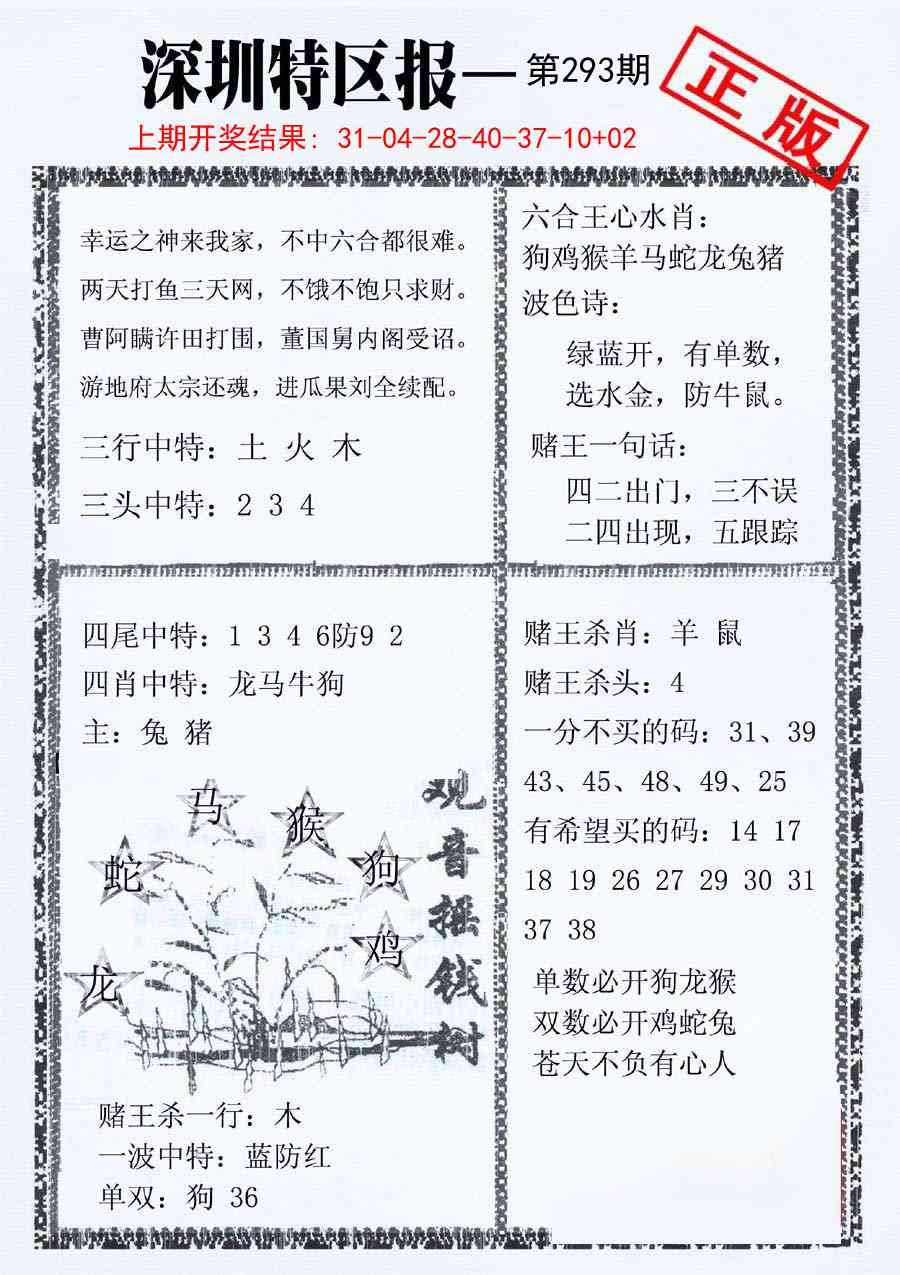 深圳特区报—第293期
正版
上期开奖结果：31-04-28-40-37-10+02
幸运之神来我家，不中六合都很难。
两天打鱼三天网，不饿不饱只求财。
曹阿瞒许田打围，董国舅内阁受诏。
游地府太宗还魂，进瓜果刘全续配。
三行中特：土 火 木
三头中特：2 3 4
六合王心水肖：
狗鸡猴羊马蛇龙兔猪
波色诗：
绿蓝开，有单数，
选水金，防牛鼠。
赌王一句话：
四二出门，三不误
二四出现，五跟踪
四尾中特：1 3 4 6防9 2
四肖中特：龙马牛狗
主：兔 猪
马
猴
蛇
狗
鸡
龙
观音摇钱树
赌王杀一行：木
一波中特：蓝防红
单双：狗 36
赌王杀肖：羊 鼠
赌王杀头：4
一分不买的码：31、39
43、45、48、49、25
有希望买的码：14 17
18 19 26 27 29 30 31
37 38
单数必开狗龙猴
双数必开鸡蛇兔
苍天不负有心人